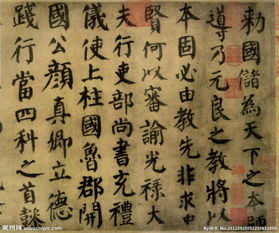 勅國儲為天下之本師
導乃元良之教將以
本固必由教先非求中
賢何以審諭光祿大
夫行吏部尚書充禮
儀使上柱國魯郡開
國公顏真卿立德
踐行當四科之首懿
昵图网 www.nipic.com